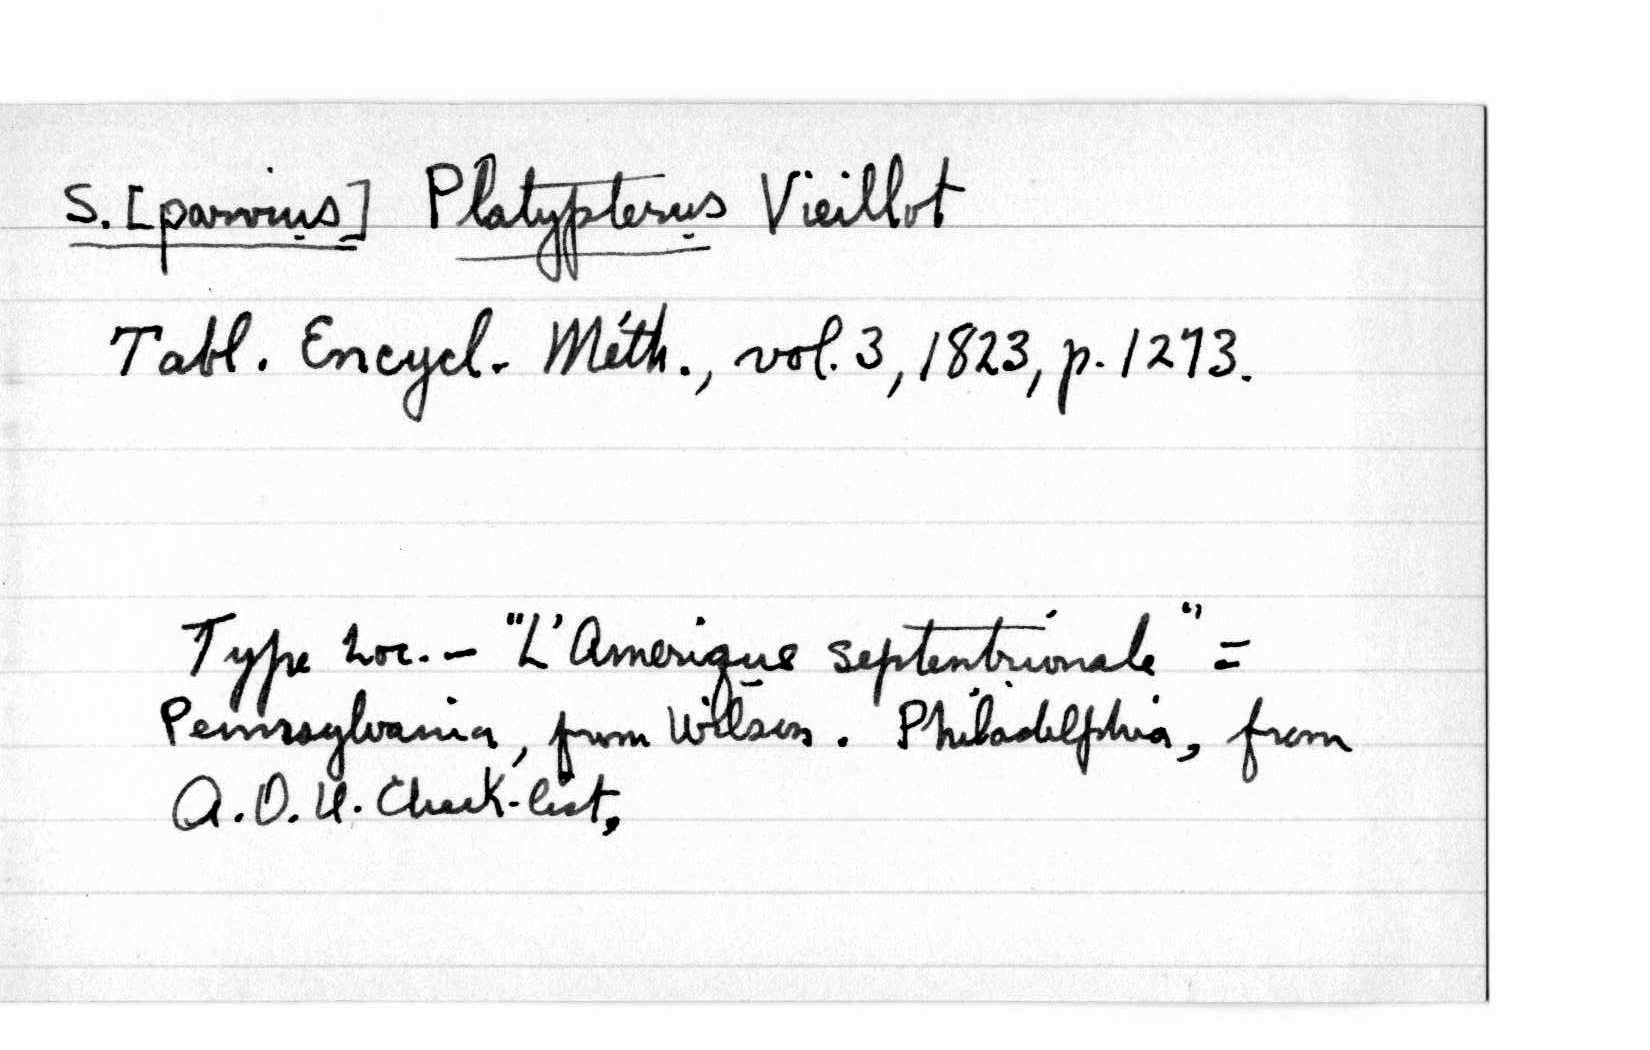 S. [parvius] Platypterus Vieillot
Tabl. Encycl. Méth., vol. 3, 1823, p. 1273.
Type Loc. - "L'Amerique septentrionale" =
Pennsylvania, from Wilson. Philadelphia, from
A.O.U. Check-list,